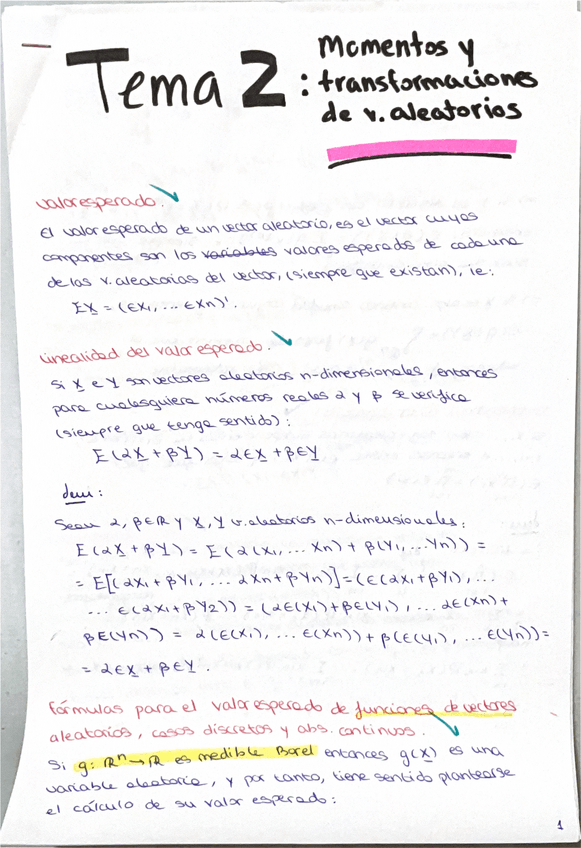 Tema 2:
Momentos y
transformaciones
de v. aleatorios
valor esperado.
El valor esperado de un vector aleatorio, es el vector cuyas
componentes son los variables valores esperados de cada una
de las v. aleatorias del vector, (siempre que existan), ie:
EX = (EX1, ... EXn)'.
Linealidad del valor esperado.
Si X e Y son vectores aleatorios n-dimensionales, entonces
para cualesquiera números reales α y β se verifica
(siempre que tenga sentido):
E(αX + βY) = αEX + βEY
dem:
Sean α, β ∈ R y X, Y v. aleatorios n-dimensionales:
E(αX + βY) = E(α(X1, ... Xn) + β(Y1, ... Yn)) =
= E[(αX1 + βY1, ... αXn + βYn)] = (E(αX1 + βY1), ...
... E(αX1 + βY2)) = (αE(X1) + βE(Y1), ... αE(Xn) +
βE(Yn)) = α(E(X1), ... E(Xn)) + β(E(Y1), ... E(Yn)) =
= αEX + βEY.
fórmulas para el valor esperado de funciones de vectores
aleatorios, casos discretos y abs. continuos.
Si g: Rⁿ → R es medible Borel entonces g(X) es una
variable aleatoria, y por tanto, tiene sentido plantearse
el cálculo de su valor esperado:
1